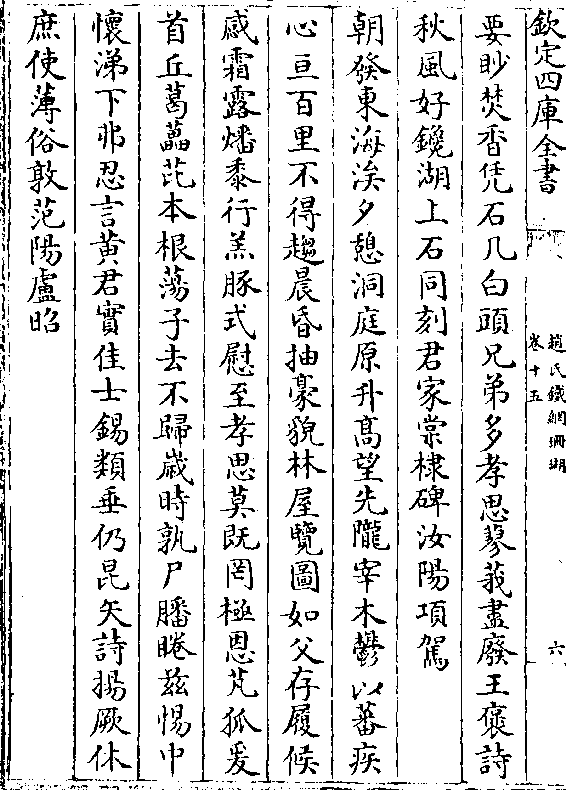 欽定四庫全書
趙氏鐵網珊瑚
卷十五
六
要眇焚香凭石几白頭兄弟多孝思蓼莪盡廢王裒詩
秋風好鑱湖上石同刻君家棠棣碑汝陽項駕
朝發東海涘夕憩洞庭原升髙望先隴宰木鬱以蕃疾
心亘百里不得趨晨昏抽豪貌林屋覽圖如父存履候
感霜露燔黍行羔豚式慰至孝思莫既罔極恩芃狐爰
首丘葛藟芘本根蕩子去不歸嵗時孰尸膰睠兹惕中
懷涕下那忍言黄君實佳士錫類垂仍昆矢詩揚厥休
庶使薄俗敦范陽盧昭